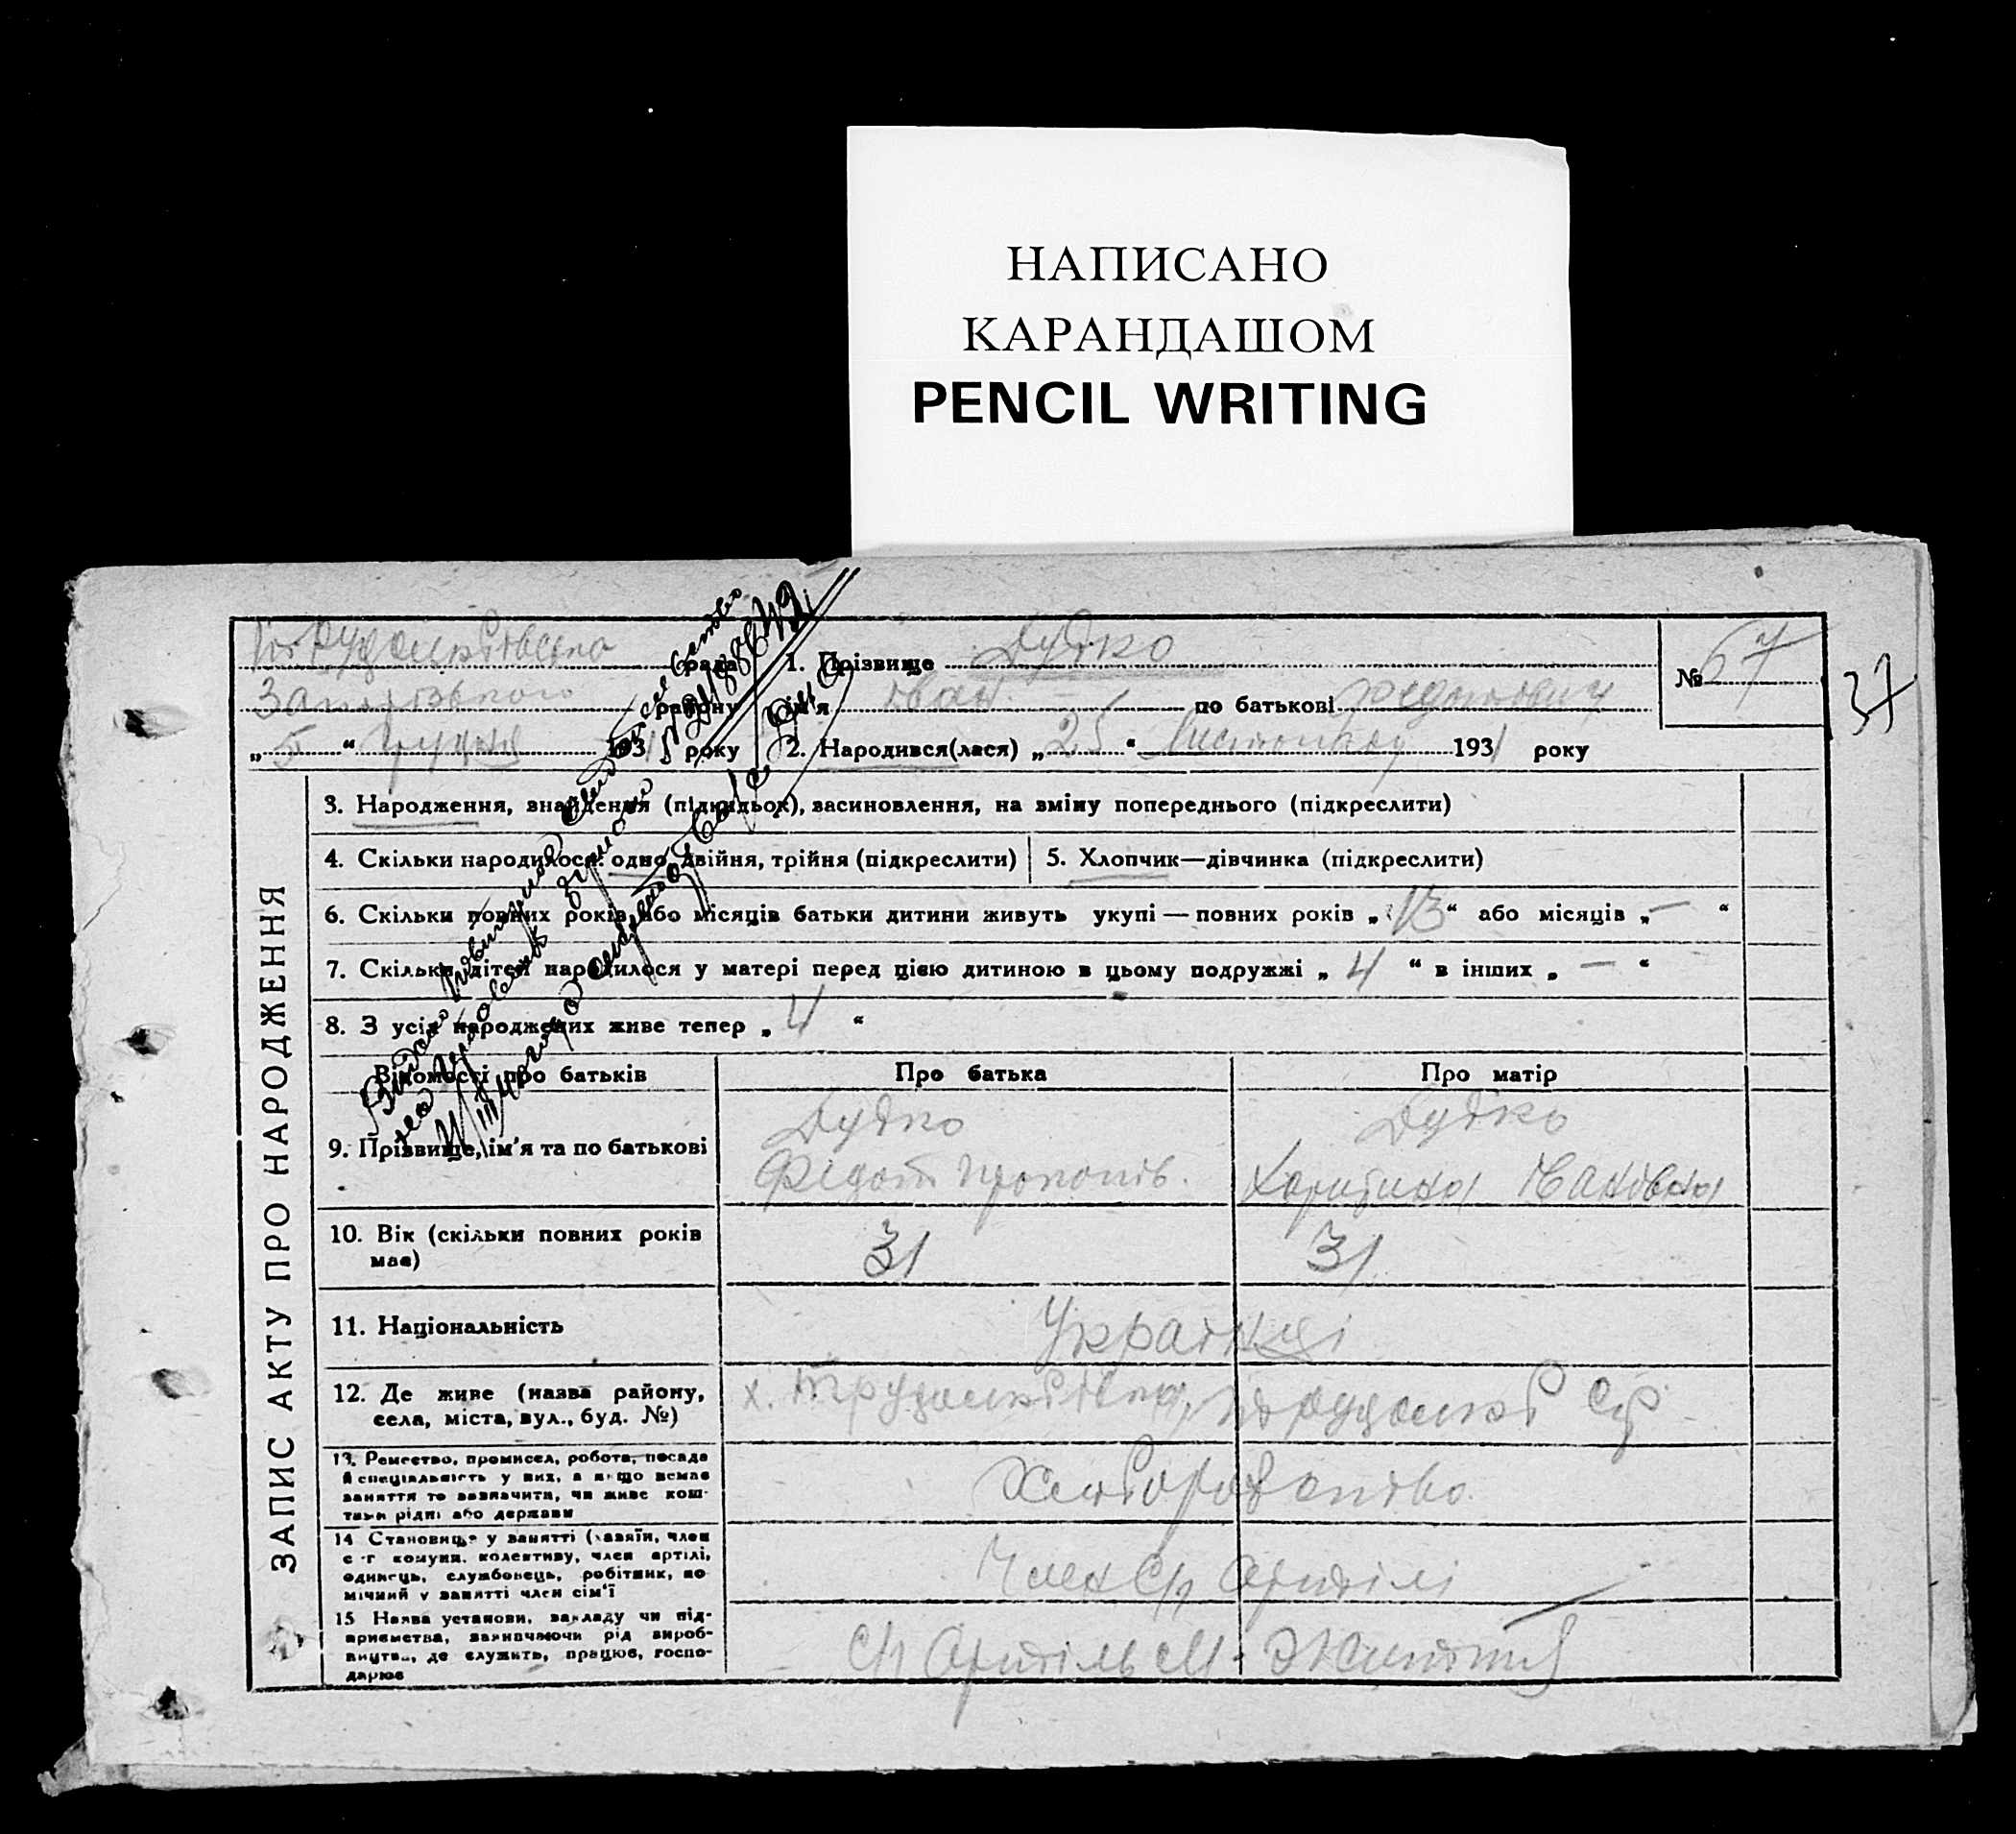 НАПИСАНО
КАРАНДАШОМ
PENCIL WRITING
рада
району
„ 5 “ грудня 1931 року
1. Прізвище Дудко
ім'я Іван по батькові Федотович
2. Народився(лася) „ 25 “ листопаду 1931 року
№ 67
37
ЗАПИС АКТУ ПРО НАРОДЖЕННЯ
3. Народження, знайдення (підкидьок), засиновлення, на зміну попереднього (підкреслити)
4. Скільки народилося: одно, двійня, трійня (підкреслити)
5. Хлопчик—дівчинка (підкреслити)
6. Скільки повних років або місяців батьки дитини живуть укупі — повних років „ 13 “ або місяців „ — “
7. Скільки дітей народилося у матері перед цією дитиною в цьому подружжі „ 4 “ в інших „ — “
8. З усіх народжених живе тепер „ 4 “
Відомості про батьків
Про батька
Про матір
9. Прізвище, ім'я та по батькові
Дудко
Федот Прокопів.
Дудко
Харитина
10. Вік (скільки повних років
має)
31
31
11. Національність
Українці
12. Де живе (назва району,
села, міста, вул., буд. №)
х.
13. Ремество, промисел, робота, посада
й спеціальність у них, а якщо немає
заняття то зазначити, чи живе кош-
тами рідні або держави
Хліборобство
14 Становище у занятті (хазяїн, член
с-г комуни, колективу, член артілі,
одинець, службовець, робітник, по
мічний у занятті член сім'ї
Член С/г Артілі
15 Назва установи, закладу чи під-
приємства, зазначаючи рід вироб-
ництва, де служить, працює, госпо-
дарює
С/г Артіль